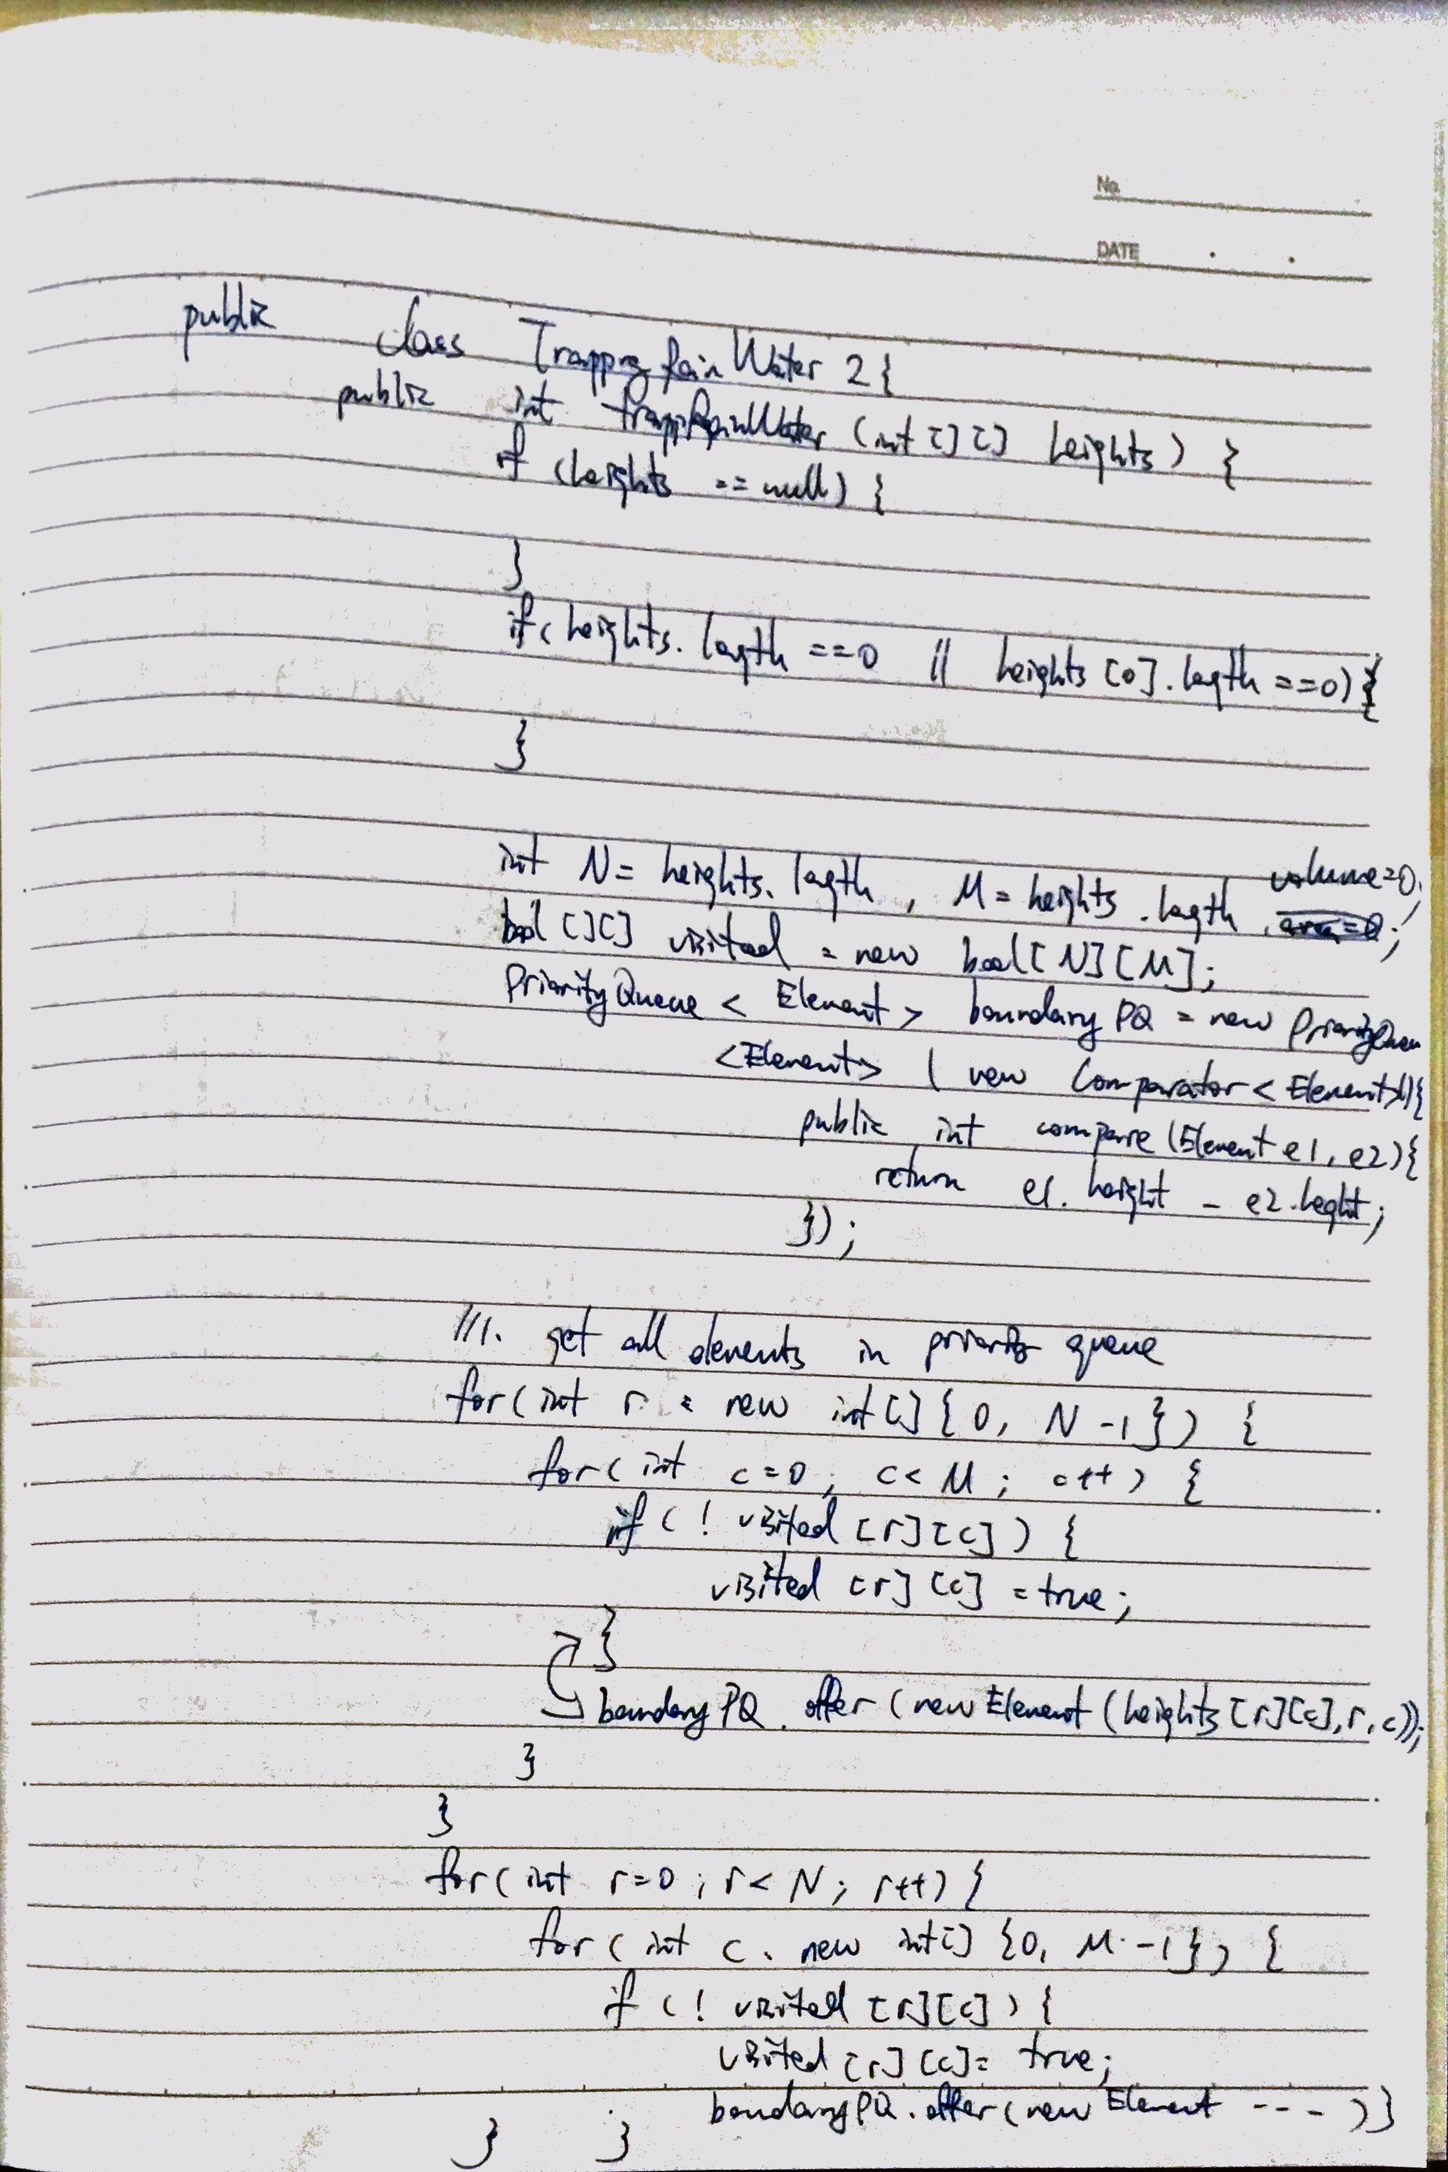 No.
DATE . .
public class Trapping Rain Water 2 {
public int trappRainWater (int [] []  heights) {
if (heights == null) {
}
if ( heights. length ==0 || heights [0]. length ==0) {
}
volume=0,
int N = heights. length , M = heights . length , area=0;
bool [][] visited = new bool [N] [M];
PriorityQueue < Element > boundary PQ = new PriorityQueue
<Element> ( new Comparator < Element>() {
public int compare (Element e1, e2) {
return e1. height - e2. height ;
});
//1. get all elements in priority queue
for ( int r : new int[] { 0, N -1 }) {
for ( int c = 0; c < M ; c++ ) {
if ( ! visited [r] [c] ) {
visited [r] [c] = true ;
}
boundary PQ . offer ( new Element (heights [r][c], r, c));
}
}
for ( int r=0 ; r < N ; r++) {
for ( int c : new int[] {0, M -1}) {
if ( ! visited [r][c] ) {
visited [r] [c] = true;
boundaryPQ . offer ( new Element --- ) }
} }